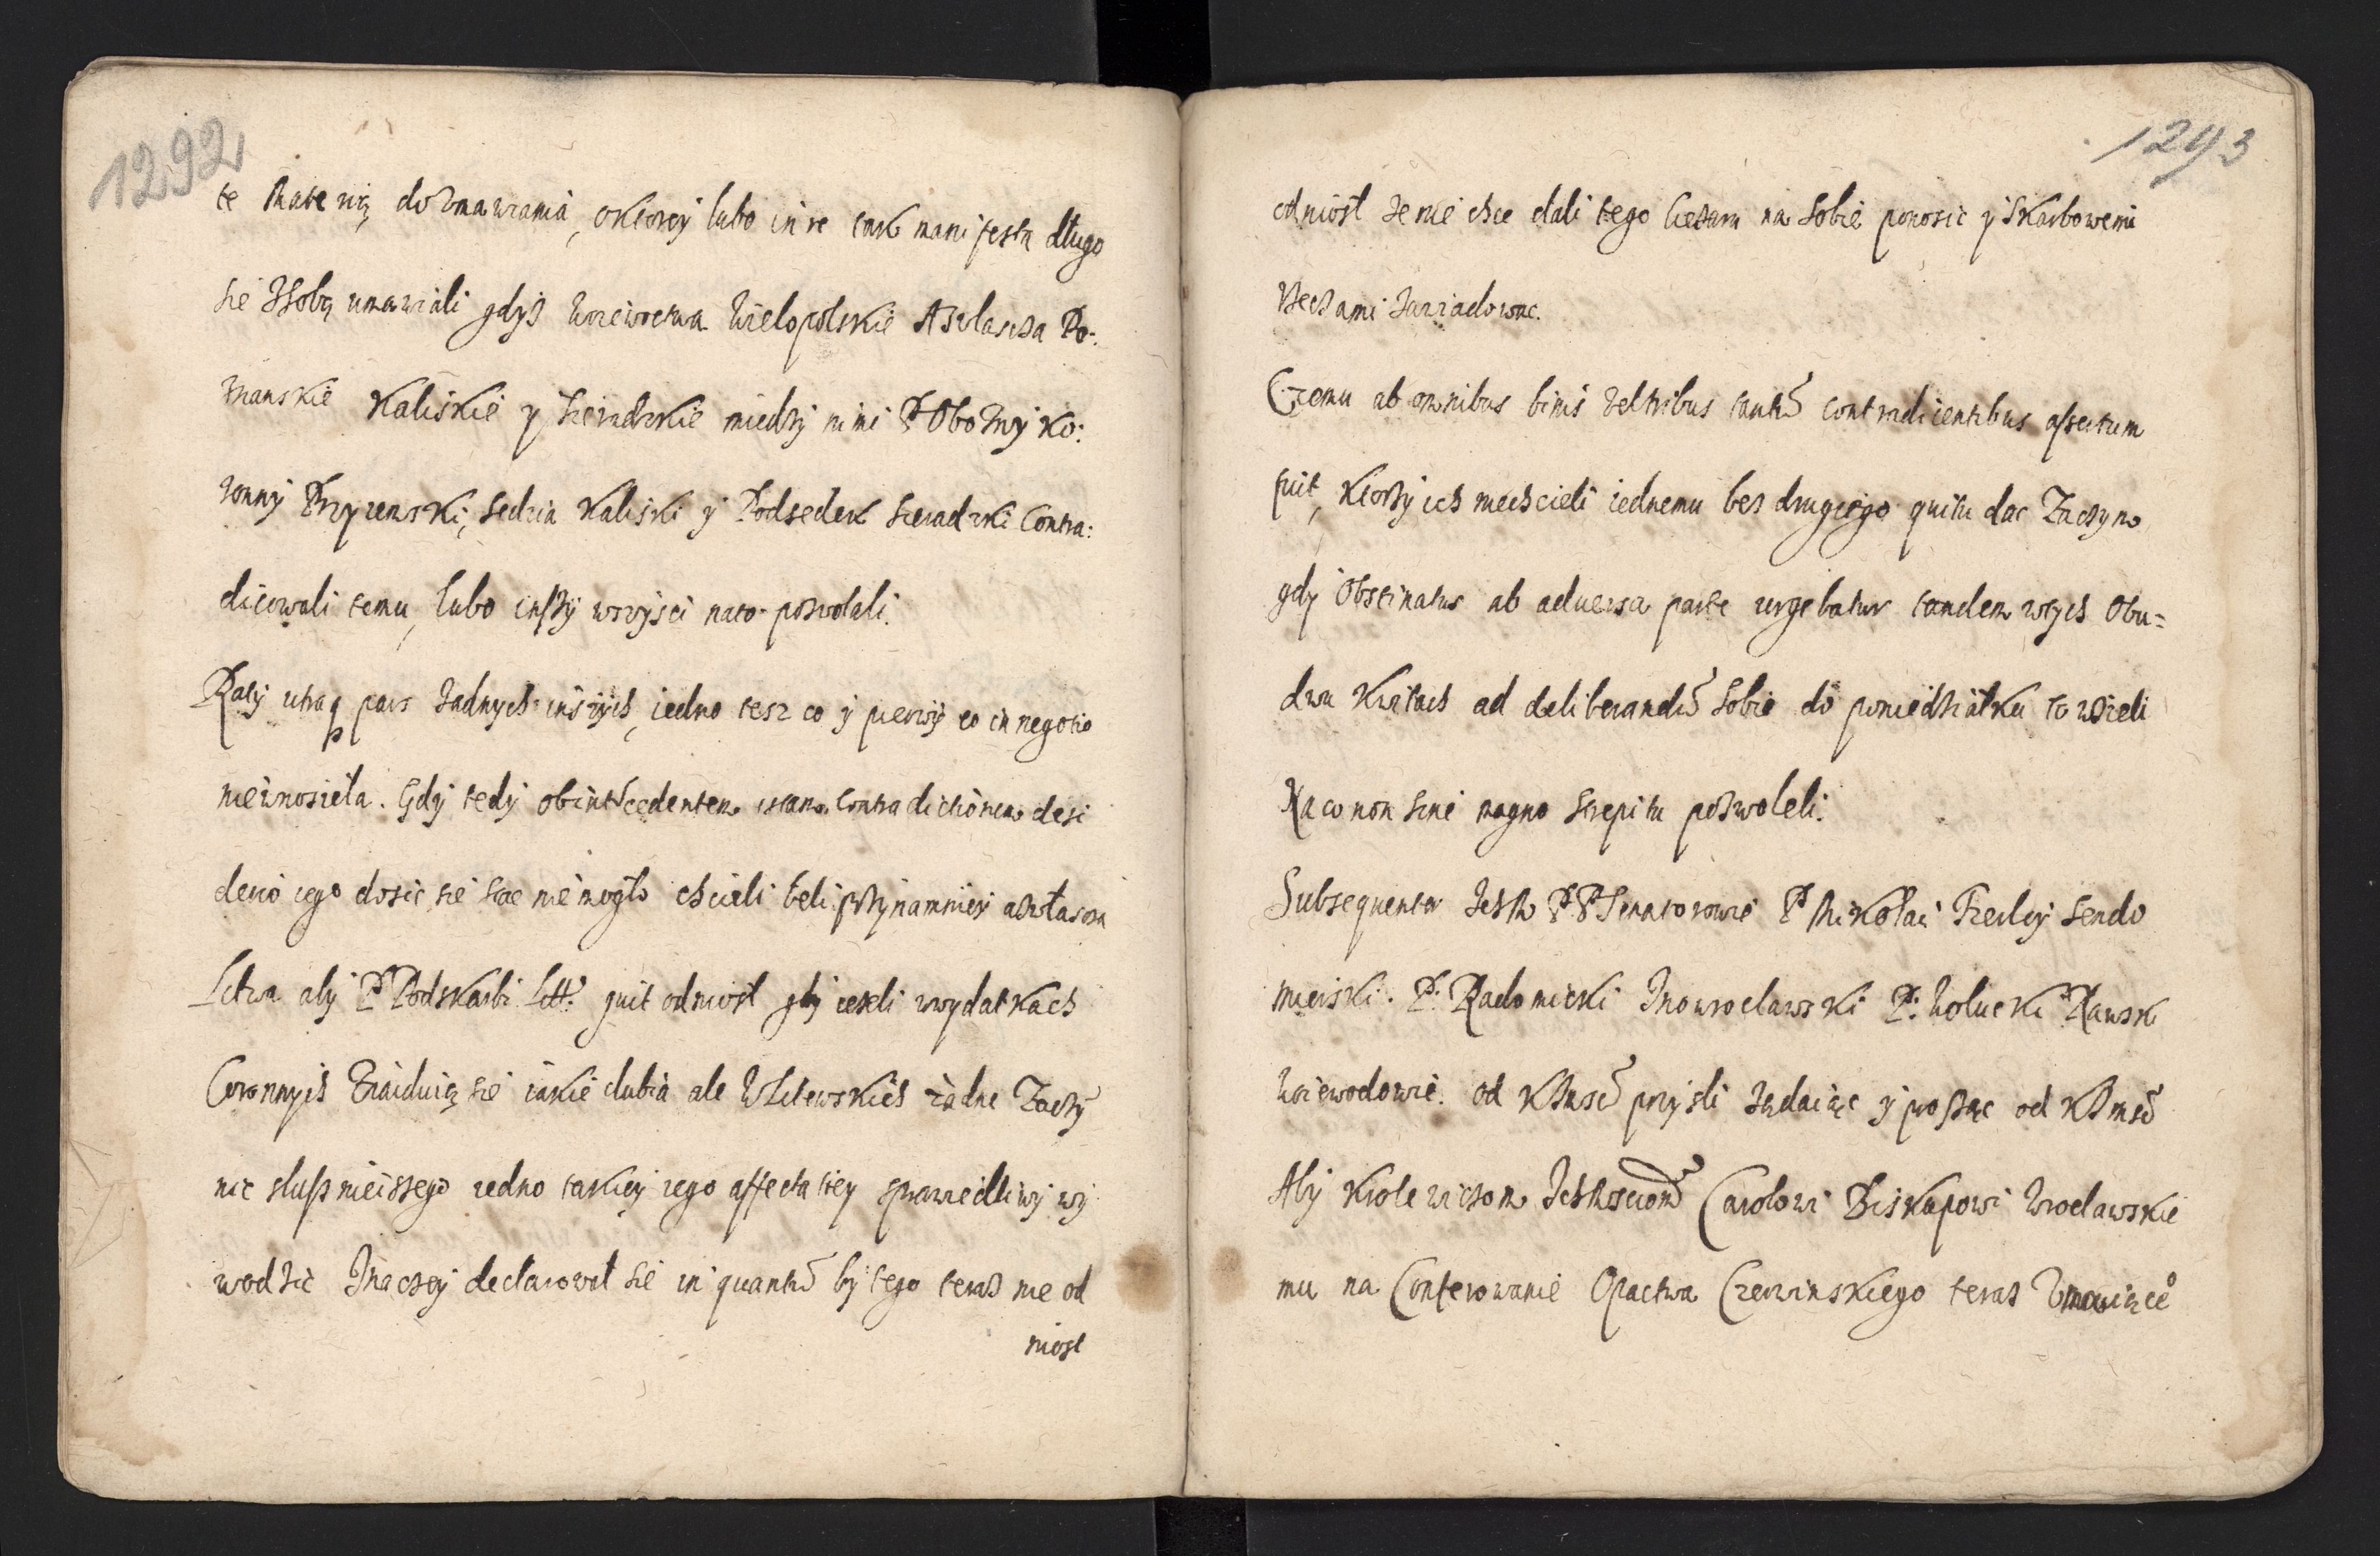 1292
te materią do Zmawiania, oktorey lubo in re tak manifesta długo
sie Zsobą umawiali gdyż Woiewoctwa Wielopolskie Azwlascza Po:
znanskie Kaliskie y Sieradzkie miedzy nimi P Obozny Ko:
ronny Przyiemski, Sedzia Kaliski y Podsedek Sieradzki Contra:
dicowali temu, lubo inszy wszyscy nato pozwolali.
Raty utraq pars Zadnych inszych, iedno tesz co y pierwy eo in negotio
niewnosieła. Gdy tedy ob intercedentem istam Contradictionem desi
derio iego dosic sie stac niemogło chcieli beli przynamniey azwłascza
Litwa aby P Podskarbi Litt. quit odniosł gdy iezeli wwydatkach
Coronnych Znaiduią sie iakie dubia ale WLitewskich żadne Zaczy
nic slusznieiszego iedno takiey iego affectatiey sprawiedliwy wy
wodzic Inaczey declarował sie in quantu by tego teraz nie od
niosł
1293
odniosł ze nie chce dali tego Ciezaru na Sobie ponosic y Skarbowemi
Rzeczami Zawiadowac.
Czemu ab omnibus binis Zeltribus tantu contradicentibus assertum
fuit, Ktorzy ich niechcieli iednemu bez drugiego quitu dac Zaczym
gdy Obstinatus ab aduersa parte urgebatur tandem wtych Obu=
dwu Kwitach ad deliberandu Sobie do poniedziałku to wzieli
Naco non sine magno strepitu pozwoleli.
Subsequenter IchM PP Senatorowie P Mikołai Firley Sendo
mierski. P. Radomicki Inowrocławski P. Wolucki Rawski
Woiewodowie. od KJmsci przysli żądaiąc y prosząc od KJmsci
Aby Krolewiczom IchMsciom Carolowi Biskupowi Wrocławskie
mu na Conferowanie Opactwa Czerwinskiego teraz